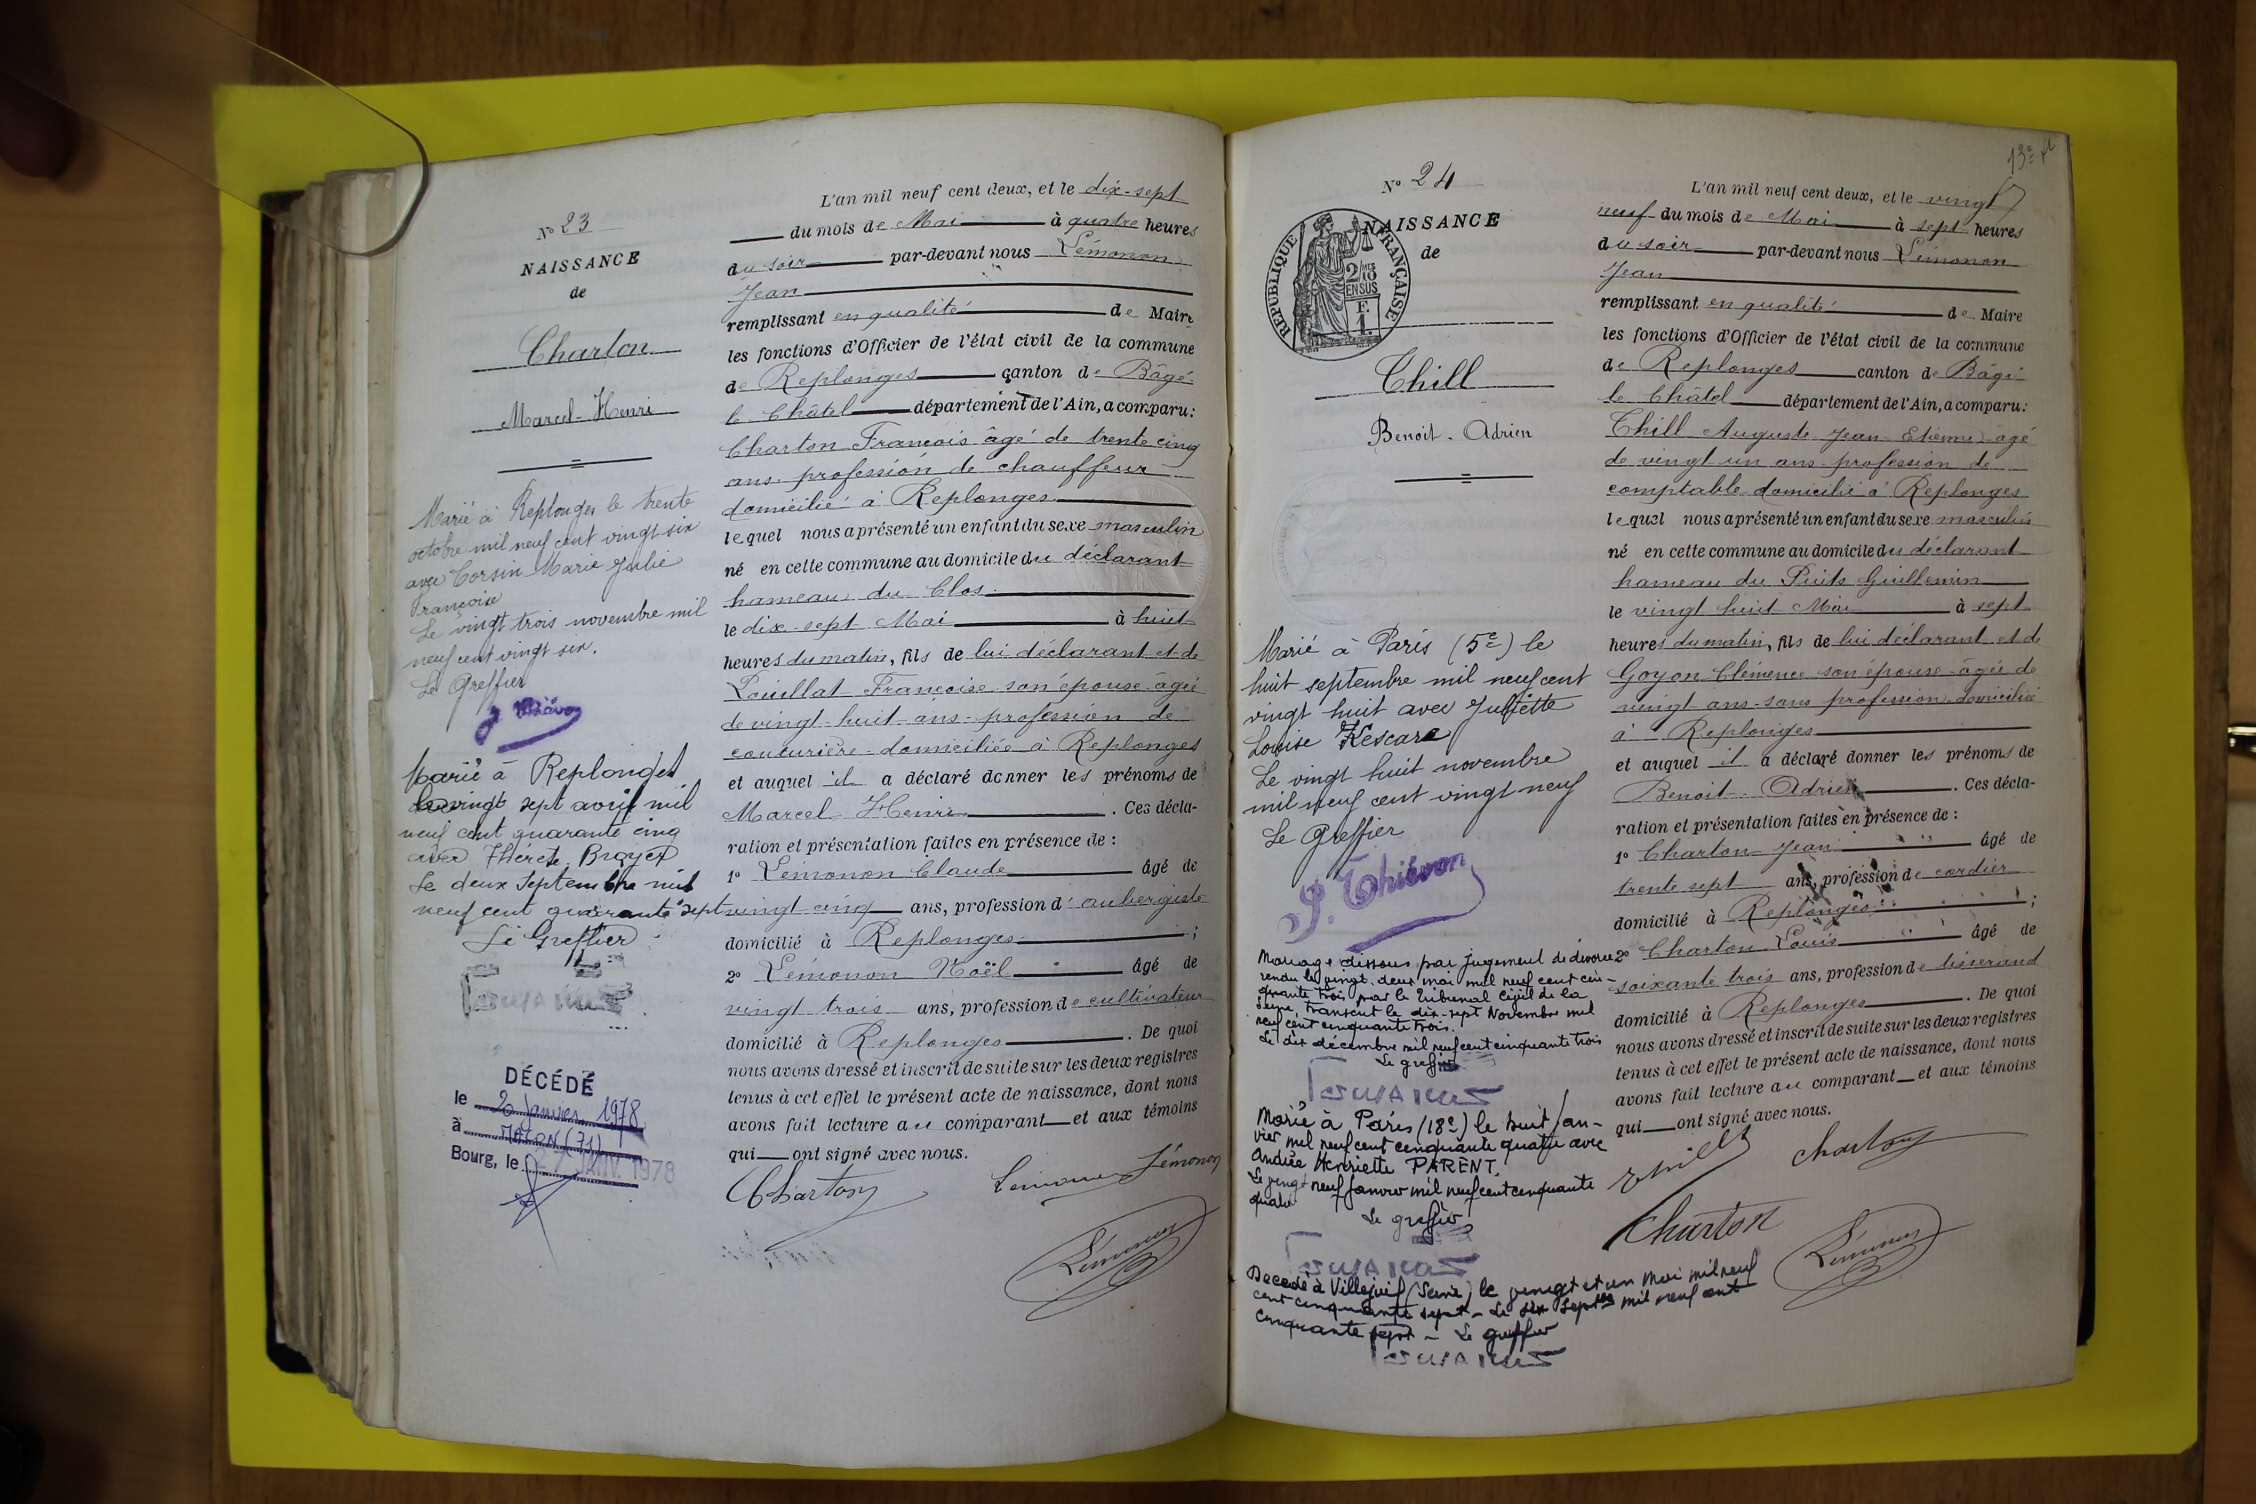 N° 23
NAISSANCE
de
Charton
Marcel-Henri
Marié à Replonges le trente
octobre mil neuf cent vingt six
avec Corsin Marie Julie
Françoise
Le vingt trois novembre mil
neuf cent vingt six.
Le Greffier
Marié à Replonges
le vingt sept avril mil
neuf cent quarante cinq
avec Thérèse Broyer
Le deux Septembre mil
neuf cent quarante sept
Le Greffier
DÉCÉDÉ
le 2 Janvier 1978
à MACON (71)
Bourg, le 27 JANV. 1978
L'an mil neuf cent deux, et le dix-sept
du mois de Mai à quatre heures
du soir par-devant nous Lémonon
Jean
remplissant en qualité de Maire
les fonctions d'Officier de l'état civil de la commune
de Replonges canton de Bâgé
le Châtel département de l'Ain, a comparu:
Charton François âgé de trente cinq
ans profession de chauffeur
domicilié à Replonges
lequel nous a présenté un enfant du sexe masculin
né en cette commune au domicile du déclarant
hameau du Clos
le dix-sept Mai à huit
heures du matin, fils de lui déclarant et de
Françoise son épouse âgée
de vingt-huit ans profession de
couturière domiciliée à Replonges
et auquel il a déclaré donner les prénoms de
Marcel Henri . Ces décla-
ration et présentation faites en présence de :
1° Lémonon Claude âgé de
vingt cinq ans, profession d'aubergiste
domicilié à Replonges ;
2° Lémonon Noël âgé de
vingt trois ans, profession de cultivateur
domicilié à Replonges . De quoi
nous avons dressé et inscrit de suite sur les deux registres
tenus à cet effet le présent acte de naissance, dont nous
avons fait lecture au comparant et aux témoins
qui ont signé avec nous.
Charton Lémonon Lémonon
Lémonon
13e
N° 24
NAISSANCE
de
RÉPUBLIQUE FRANÇAISE
2/10 MES
EN SUS
F.
1.
Thill
Benoit. Adrien
Marié à Paris (5e) le
huit septembre mil neuf cent
vingt huit avec Juliette
Louise Kescare
Le vingt huit novembre
mil neuf cent vingt neuf
Le Greffier
P. Thiévon
Mariage dissous par jugement de divorce
rendu le vingt deux mai mil neuf cent cin-
quante trois par le Tribunal Civil de la
Seine, transcrit le dix-sept Novembre mil
neuf cent cinquante trois.
Le dix décembre mil neuf cent cinquante trois
Le greffier
Marié à Paris (18e) le huit jan-
vier mil neuf cent cinquante quatre avec
Andrée Henriette PARENT.
Le vingt neuf janvier mil neuf cent cinquante
quatre
Le greffier
Décédé à Villejuif (Seine) le vingt et un Mai mil neuf
cent cinquante sept - Le six Septbre mil neuf cent
cinquante sept - Le greffier
L'an mil neuf cent deux, et le vingt
neuf du mois de Mai à sept heures
du soir par-devant nous Lémonon
Jean
remplissant en qualité de Maire
les fonctions d'Officier de l'état civil de la commune
de Replonges canton de Bâgé
le Châtel département de l'Ain, a comparu:
Thill Auguste Jean Etienne âgé
de vingt un ans profession de
comptable domicilié à Replonges
lequel nous a présenté un enfant du sexe masculin
né en cette commune au domicile du déclarant
hameau du Puits Guillemin
le vingt huit Mai à sept
heures du matin, fils de lui déclarant et de
Goyon Clémence son épouse âgée de
vingt ans sans profession domiciliée
à Replonges
et auquel il a déclaré donner les prénoms de
Benoit. Adrien . Ces décla-
ration et présentation faites en présence de :
1° Charton Jean âgé de
trente sept ans, profession de cordier
domicilié à Replonges ;
2° Charton Louis âgé de
soixante trois ans, profession de tisserand
domicilié à Replonges . De quoi
nous avons dressé et inscrit de suite sur les deux registres
tenus à cet effet le présent acte de naissance, dont nous
avons fait lecture au comparant et aux témoins
qui ont signé avec nous.
Thill Charton
Charton Lémonon